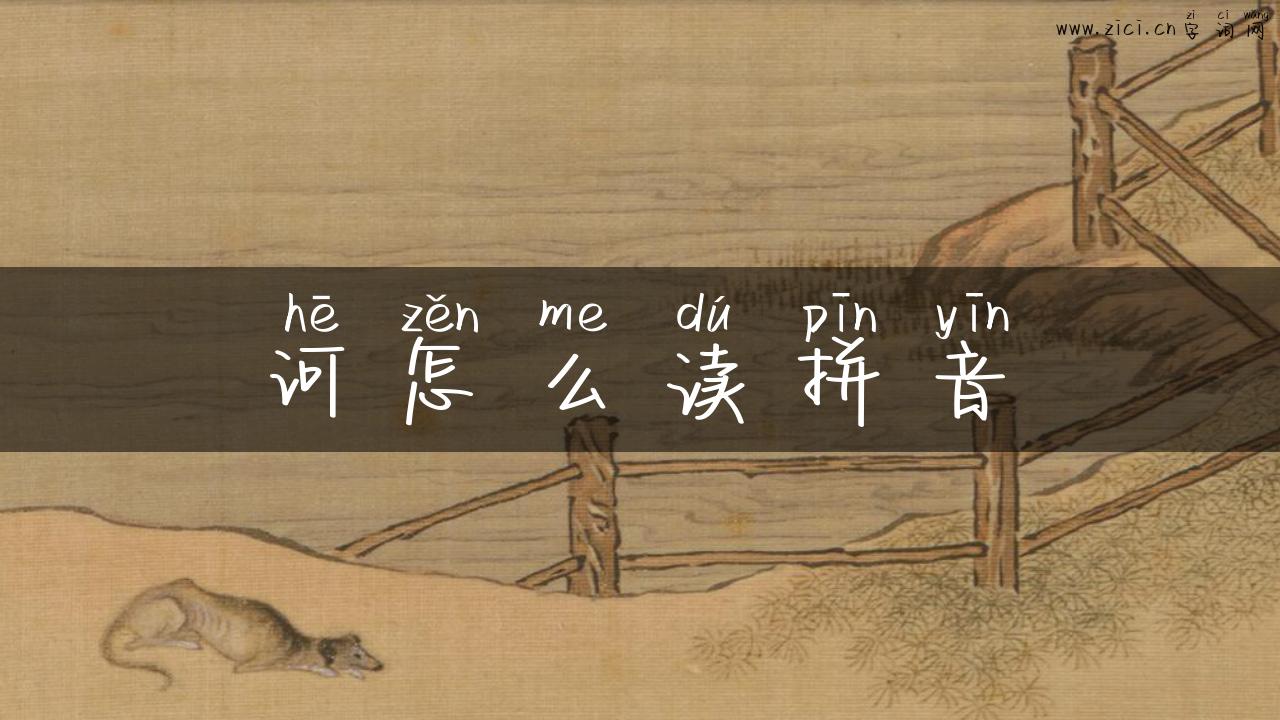 zì cí wǎng
www.zici.cn 字词网
hē zěn me dú pīn yīn
诃怎么读拼音